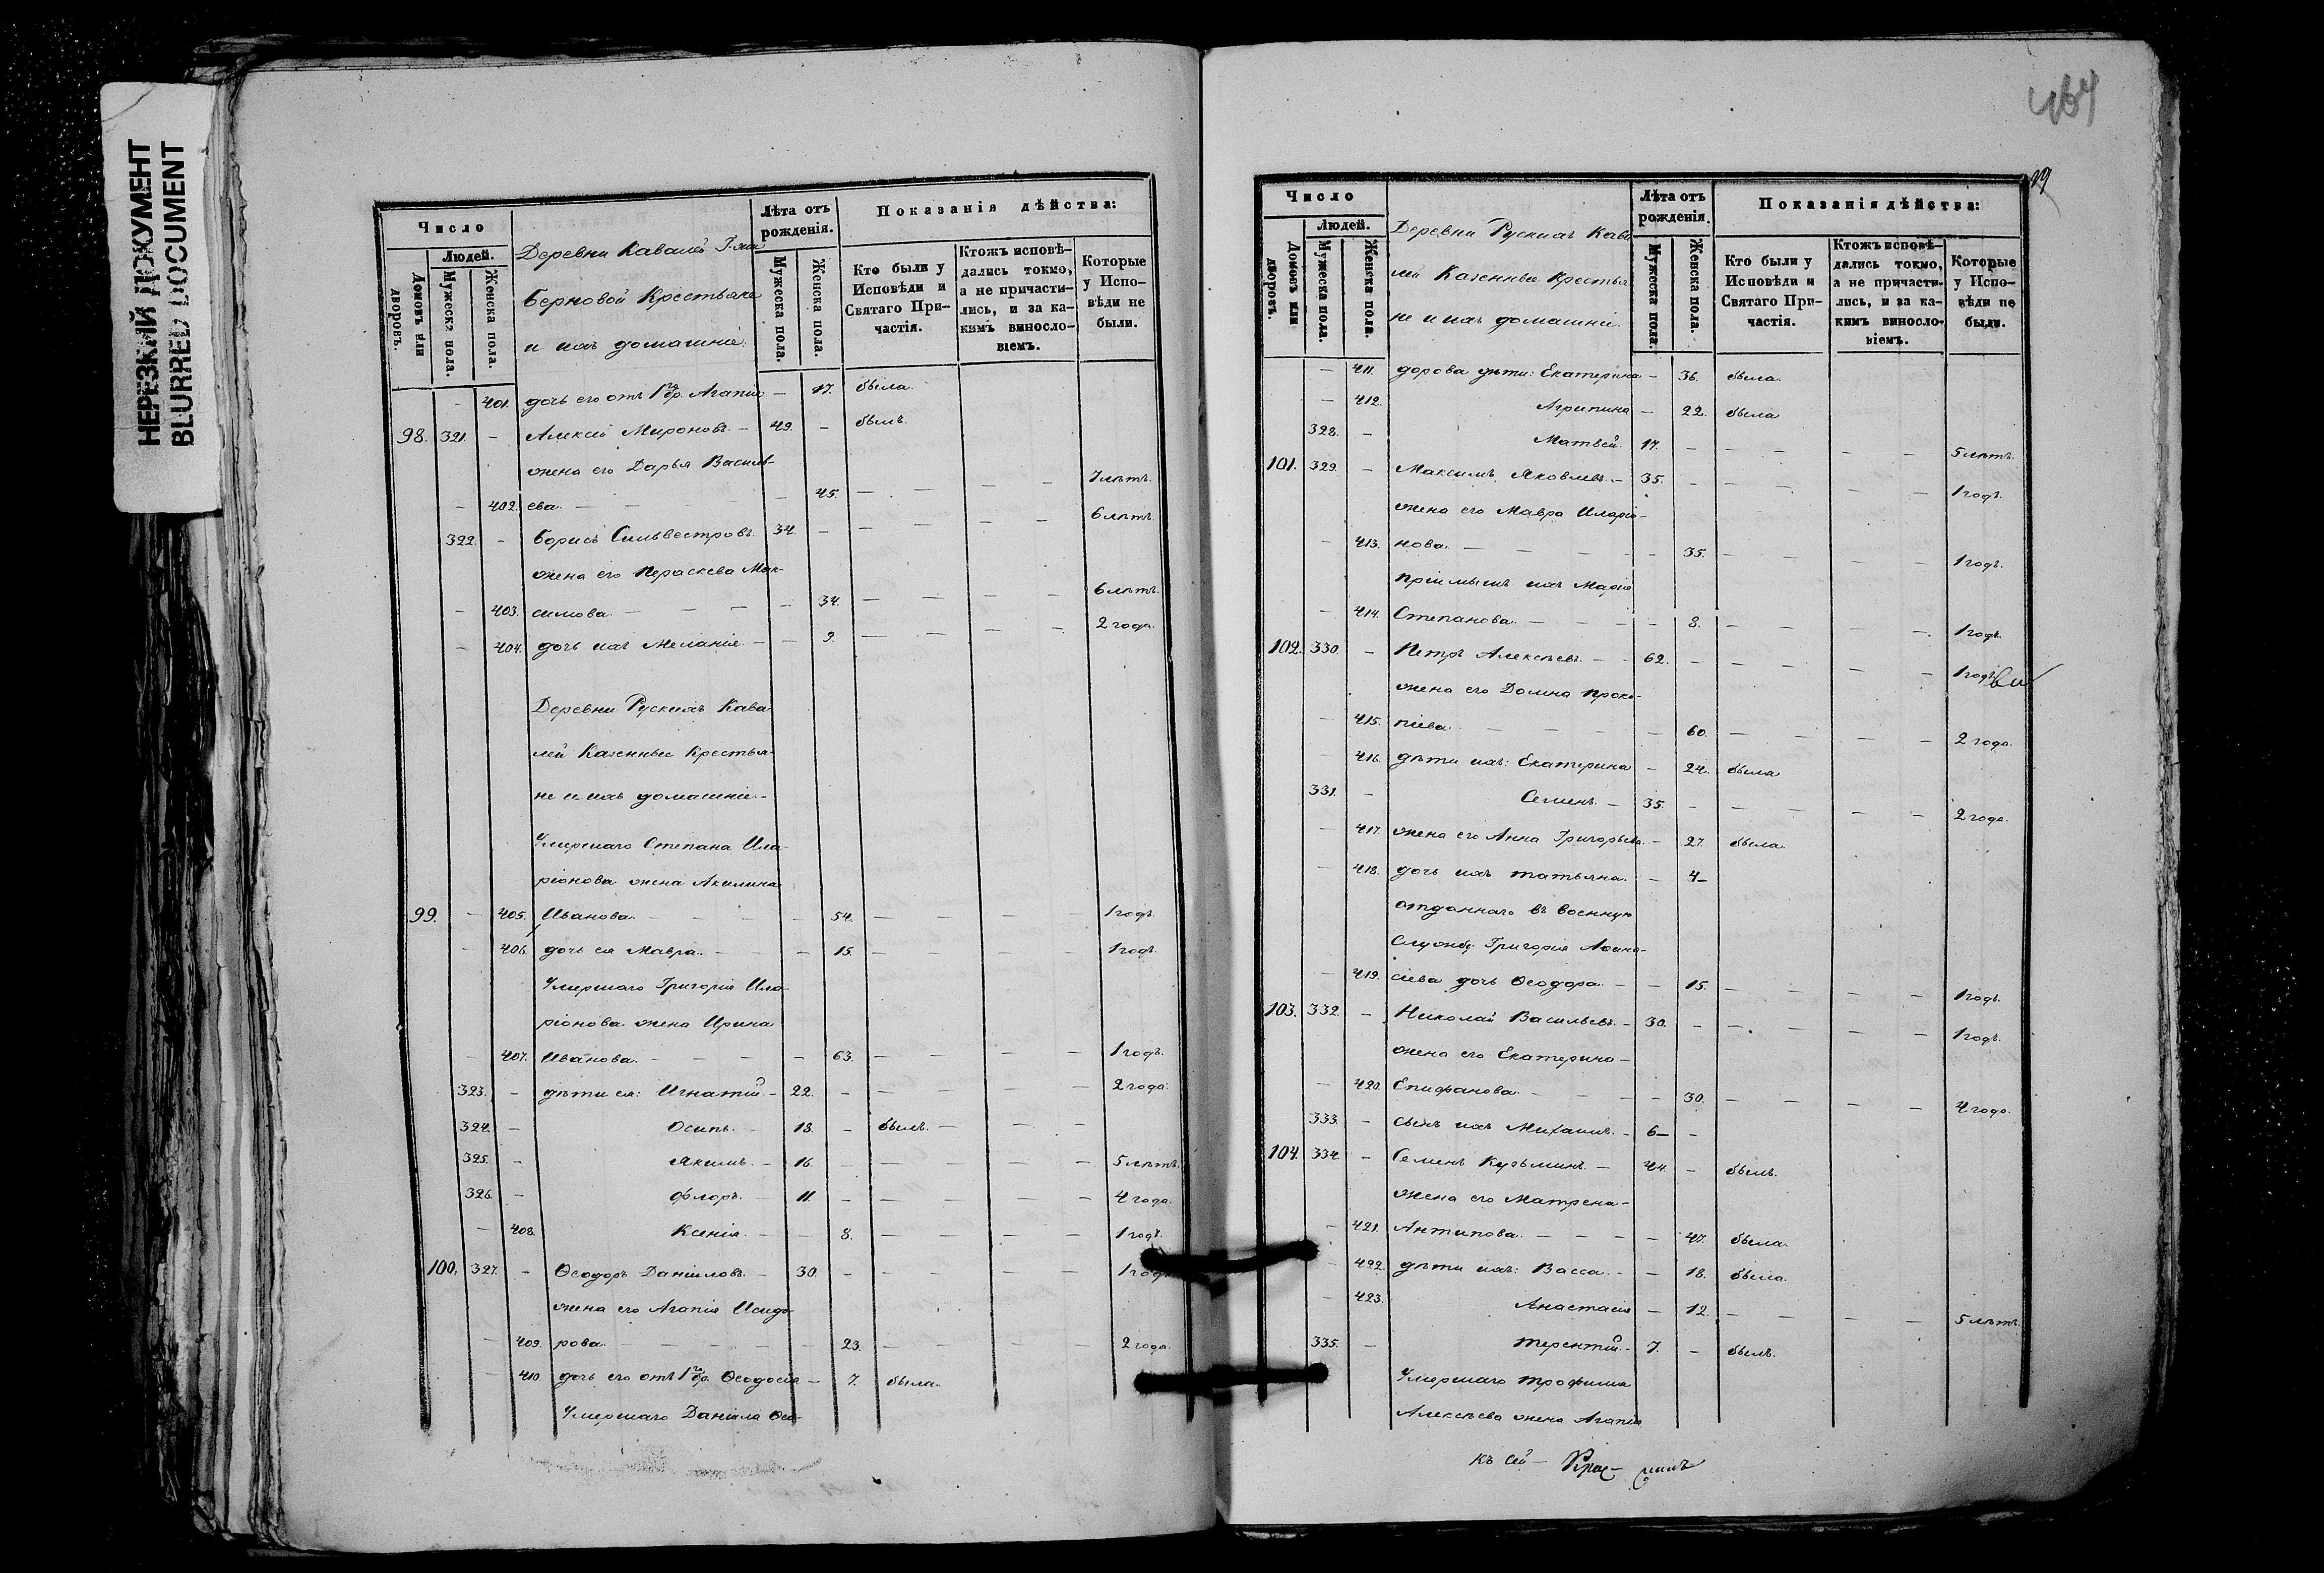 НЕРЕЗКИЙ ДОКУМЕНТ
BLURRED DOCUMENT
Число
Людей.
Домовъ или дворовъ.
Мужеска пола.
Женска пола.
Деревни Кавалей Г-жи
Берновой Крестьяне
и ихъ домашніе.
Лѣта отъ рожденія.
Мужеска пола.
Женска пола.
Показанія дѣйства:
Кто были у Исповѣди и Святаго Причастія.
Ктожъ исповѣдались токмо, а не причастились, и за какимъ винословіемъ.
Которые у Исповѣди не были.
– 401. дочь его отъ 1го бр. Агапія – 17. была.
98. 321. – Алексій Мироновъ. – 49. – былъ.
жена его Дарья Василь-
– 402. ева. – – – – 45. – – – – 7 лѣтъ.
322. – Борисъ Сильвестровъ. 34. – – – – – 6 лѣтъ.
жена его Параскева Мак-
– 403. симова. – – – – 34. – – – – 6 лѣтъ.
– 404. дочь ихъ Меланія. – – 9. – – – – 2 года.
Деревни Рускихъ Кава
лей Казенные Крестья-
не и ихъ домашніе.–
Умершаго Степана Ила-
ріонова жена Акилина
99. – 405. Иванова. – – – – 54. – – – – 1 годъ.
– 406. дочь ея Мавра. – – – 15. – – – – 1 годъ.
Умершаго Григорія Ила-
ріонова жена Ирина
– 407. Иванова. – – – – 63. – – – – 1 годъ.
323. – дѣти ея: Игнатій – 22. – – – – – 2 года.
324. – Осипъ. – 18. – былъ. – – –
325. – Якимъ. – 16. – – – – – 5 лѣтъ.
326. – Флоръ. – 11. – – – – – 4 года.
– 408. Ксенія. – – 8. – – – – 1 годъ.
100. 327. – Ѳеодоръ Даниловъ. – 30. – – – – – 1 годъ.
жена его Агапія Исидо-
– 409. рова. – – – – – 23. – – – – 2 года.
– 410 дочь его отъ 1го бр. Ѳеодосія – 7. была.
Умершаго Даніила Ѳео-
464
29
Число
Людей.
Домовъ или дворовъ.
Мужеска пола.
Женска пола.
Деревни Рускихъ Кава
лей Казенные Крестья
не и ихъ домашніе.
Лѣта отъ рожденія.
Мужеска пола.
Женска пола.
Показанія дѣйства:
Кто были у Исповѣди и Святаго Причастія.
Ктожъ исповѣдались токмо, а не причастились, и за какимъ винословіемъ.
Которые у Исповѣди не были.
– 411. дорова дѣти: Екатерина – 36. была.
– 412. Агрипина – 22. была
328. – Матвей. 17. – – – – – 5 лѣтъ.
101. 329. – Максимъ Яковлевъ. – 35. – – – – – 1 годъ.
жена его Мавра Иларіо-
– 413. нова. – – – – – 35. – – – – 1 годъ.
пріимышъ ихъ Марія
– 414. Степанова. – – – – 8. – – – – 1 годъ.
102. 330. – Петръ Алексѣевъ. – – 62. – – – – – 1 годъ.
жена его Домна Проко-
– 415. піева. – – – – – 60. – – – – 2 года.
– 416. дѣти ихъ: Екатерина – 24. была
331. – Семенъ. – 35. – – – – – 2 года.
– 417. жена его Анна Григорьева. – 27. была.
– 418. дочь ихъ Татьяна. – 4–
отданнаго въ военную
службу Григорія Аѳана-
– 419. сіева дочь Ѳеодора. – – 15. – – – – 1 годъ.
103. 332. – Николай Васильевъ. – 30. – – – – – 1 годъ.
жена его Екатерина –
– 420. Епифанова. – – – – 30. – – – – 4 года.
333. – сынъ ихъ Михаилъ. – 6– –
104. 334. – Семенъ Кузьминъ. – 44. – былъ.
жена его Матрена –
– 421. Антипова. – – – – 47. была.
– 422. дѣти ихъ: Васса. – – 18. была.
– 423. Анастасія – 12. – – – – 5 лѣтъ.
335. – Терентій. – 7. – былъ.
Умершаго Трофима
Алексѣева жена Агапія
Къ сей –